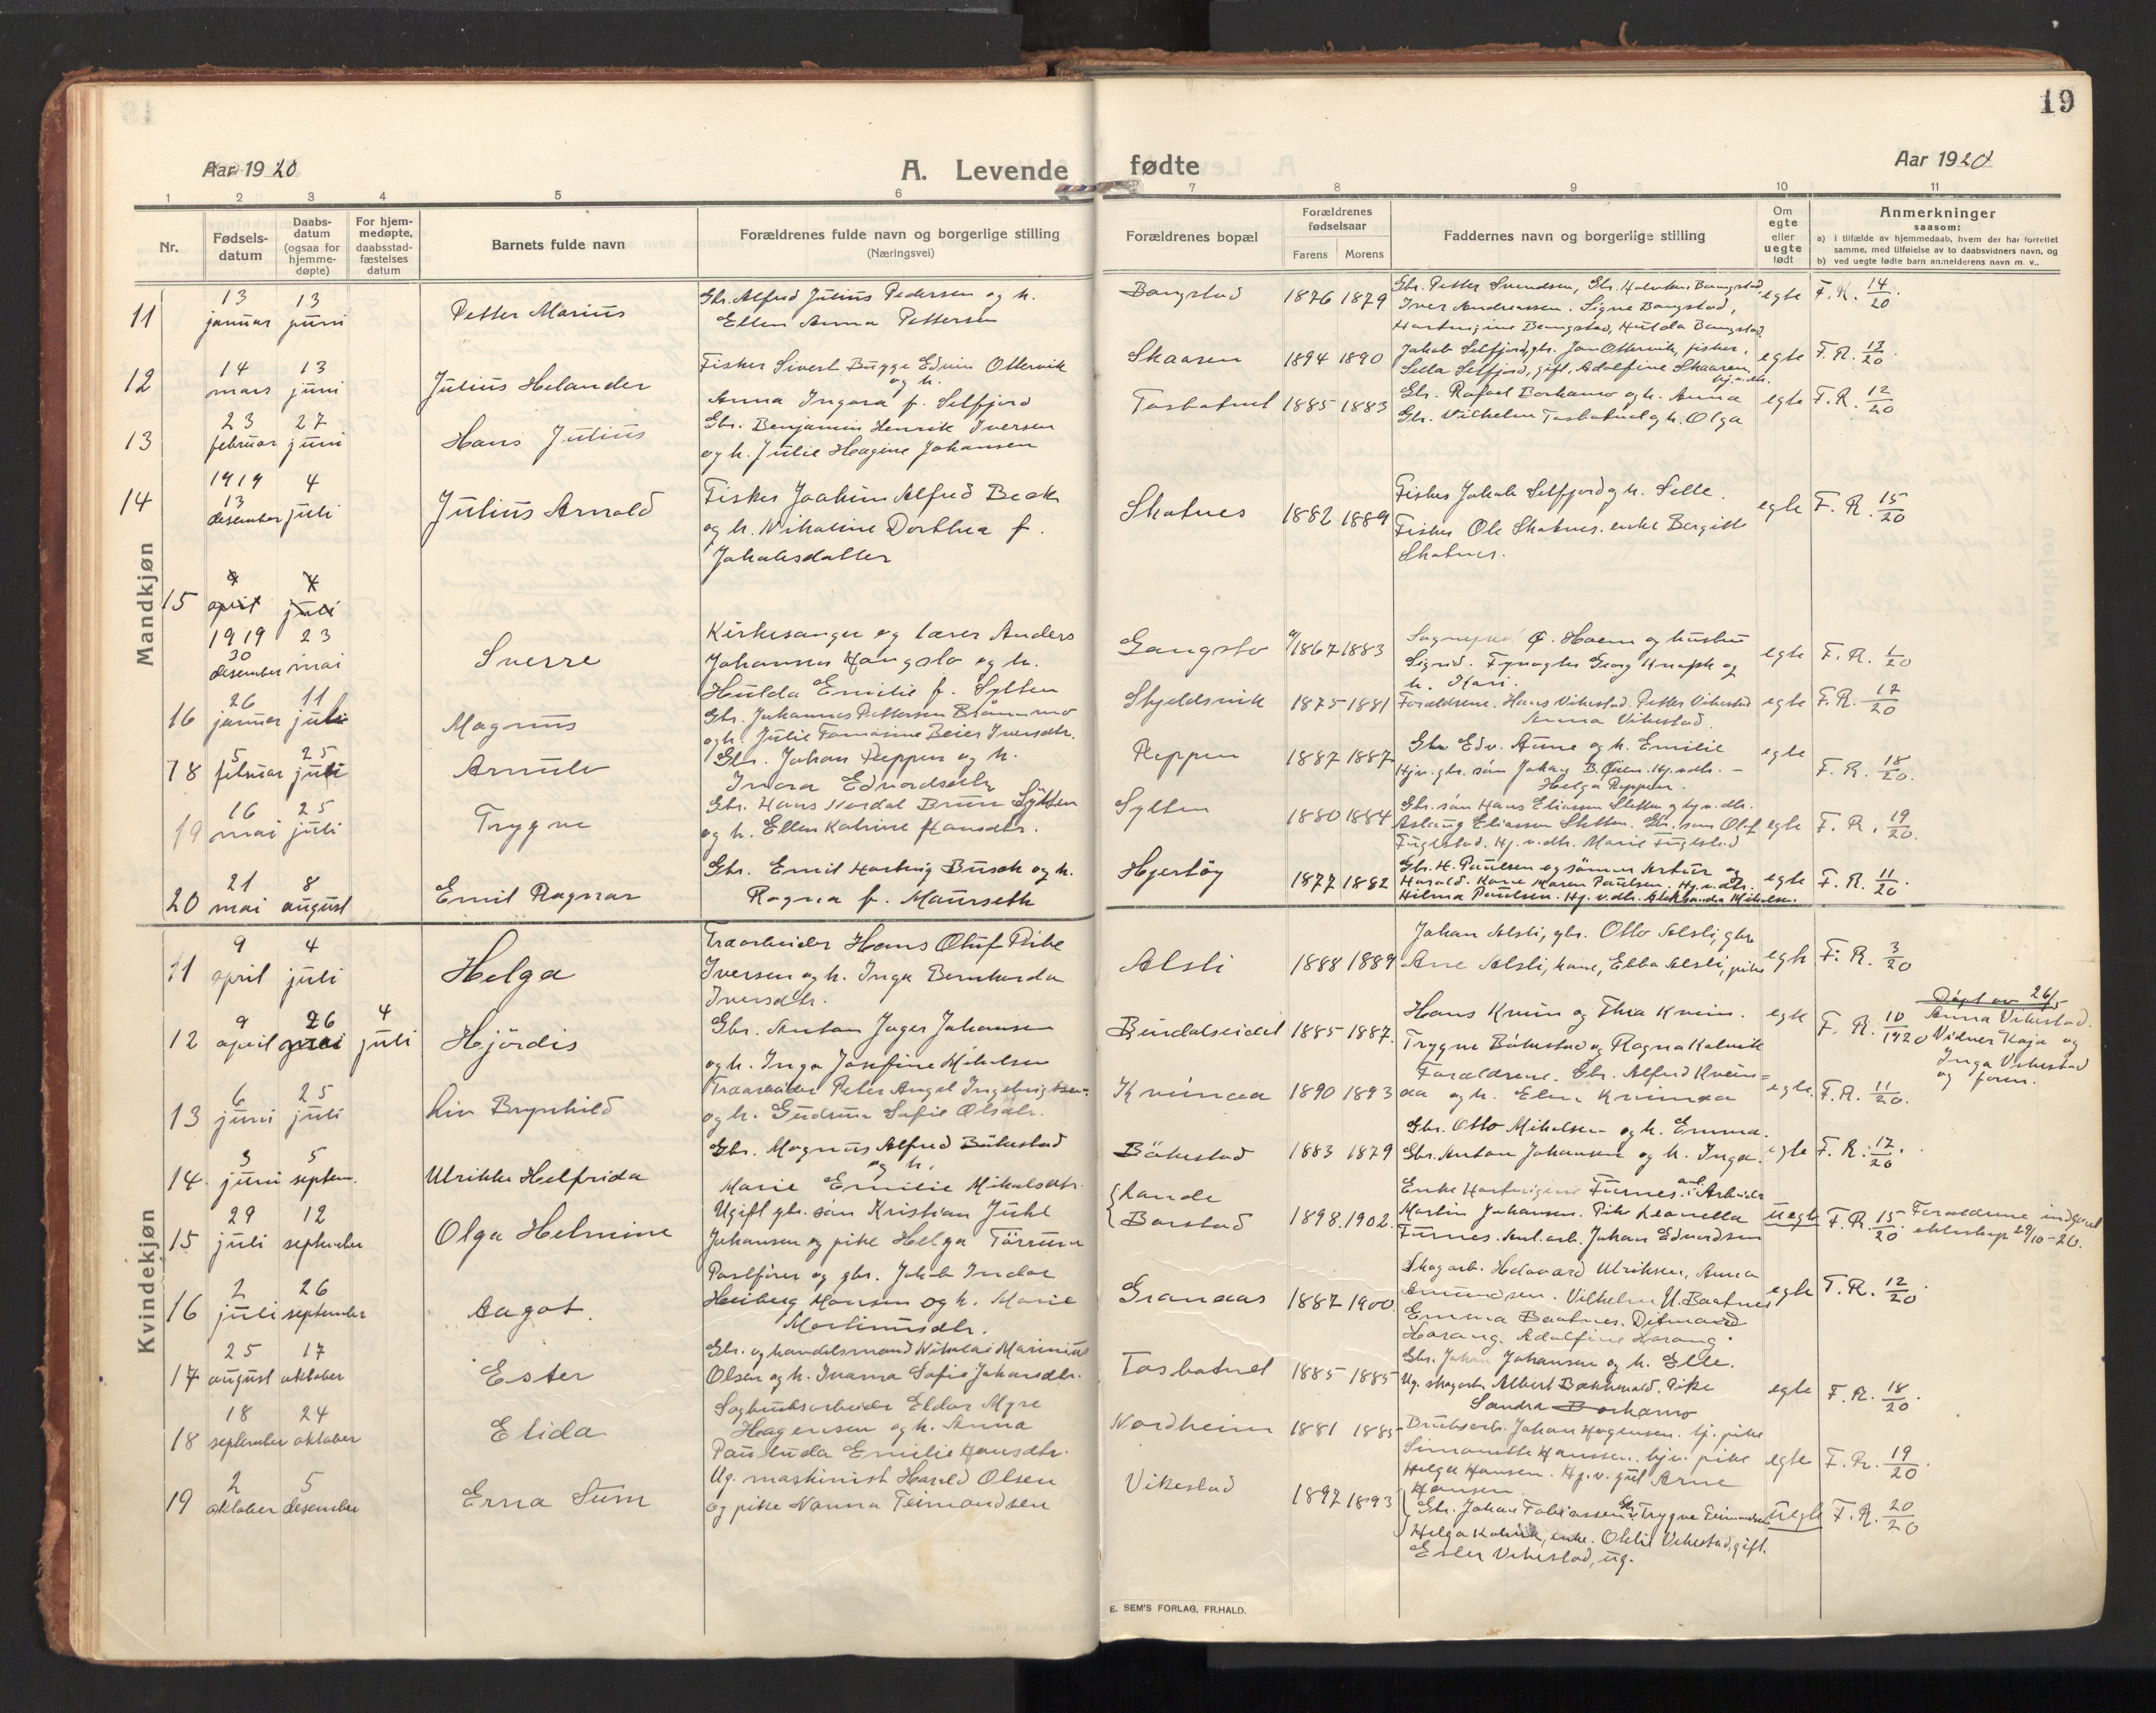 19
Aar 1920
A. Levende fødte
Aar 1920
1 2 3 4 5 6 7 8 9 10 11
Nr.
Fødsels-
datum
Daabs-
datum
(ogsaa for
hjemme-
døpte)
For hjem-
medøpte,
daabsstad-
fæstelses
datum
Barnets fulde navn
Forældrenes fulde navn og borgerlige stilling
(Næringsvei)
Forældrenes bopæl
Forældrenes
fødselsaar
Farens Morens
Faddernes navn og borgerlige stilling
Om
egte
eller
uegte
født
Anmerkninger
saasom:
a) i tilfælde av hjemmedaab, hvem der har forrettet
samme, med tilføielse av to daabsvidners navn, og
b) ved uegte fødte barn anmelderens navn m. v..
Mandkjøn
11
13 januar
13 juni
Petter Marius
Gbr. Alfred Julius Pedersen og h.
Ellen Anna Pettersen
Bangstad
1876 1879
Gbr. Petter Svendsen, Gbr.
Iver Andreassen. Signe Bangstad,
Hulda Bangstad
egte
F. R. 14/20.
12
14 mars
13 juni
Julius Helander
Fisker Sivert Bugge Edvin Ottervik
og h.
Anna Ingara f. Selfjord
Skaaren
1894 1890
Jakob Selfjord, gbr. Jon Ottervik, fisker.
Sella Selfjord, gift. Adolfine Skaaren,
hj.v.dtr.
egte
F. R. 13/20.
13
23 februar
27 juni
Hans Julius
Gbr. Benjamin Henrik Iversen
og h. Julie Hagine Johansen
Tosbotnet
1885 1883
Gbr. Rafael Borkamo og h. Anna
Gbr. Vilhelm Tosbotnet og h. Olga
egte
F. R. 12/20
14
1919
13 desember
4 juli
Julius Arnold
Fisker Joakim Alfred Beck
og h. Nikoline Dorthea f.
Jakobsdatter
Skotnes
1882 1889
Fisker Jakob Selfjord og h. Selle.
Fisker Ole Skotnes. enke Bergitte
Skotnes.
egte
F. R. 15/20
15
april
juli
1919
30 desember
23 mai
Sverre
Kirkesanger og lærer Anders
Johansen Kangsto og h.
Hulda Emilie f. Sylten
Gangsto
1867 1883
Sogneprest Ø. Hoem og hustru
Sigrid. Fyrvogter Georg Knaph og
h. Kari.
egte
F. R. 1/20
16
26 januar
11 juli
Magnus
Gbr. Johannes Pettersen Blommo
og h. Julie Tomasine Beier Iversdtr.
Skjeldsvik
1875 1881
Forældrene. Hans Vikestad. Petter Vikestad
Anna Vikestad.
egte
F. R. 17/20
18
5 februar
25 juli
Arnulv
Gbr. Johan Reppen og h.
Indra Edvardsdtr
Reppen
1887 1887
Gbr Edv. Aune og h. Emilie
Hjv. gbr. søn Johan B. Øien. Hj.v.dtr. –
Helga Reppen.
egte
F. R. 18/20.
19
16 mai
25 juli
Trygve
Gbr. Hans Nordal Brun Sylten
og h. Ellen Katrine Hansdtr.
Sylten
1880 1884
Gbr. søn Hans Eliassen Sletten og hj.v.dtr.
Aslaug Eliassen Sletten. Gbr. søn Olaf
Fuglstad. Hj.v.dtr. Marie Fuglstad
egte
F. R. 19/20.
20
21 mai
8 august
Emil Ragnar
Gbr. Emil Hartvig Busch og h.
Ragna f. Maurseth
Hjertøy
1877 1882
Gbr. H. Paulsen og sønner Artur og
Harald. Kone Maren Paulsen. Hj.v.dtr.
Hilma Paulsen. Hj.v.dtr. Aleksandra Mikalsen.
egte
F. R. 11/20.
Kvindekjøn
11
9 april
4 juli
Helga
Træarbeider Hans Oluf Rise
Iversen og h. Inga Bernharda
Iversdtr.
Alsli
1888 1889
Johan Alsli, gbr. Otto Alsli, gbr.
Ane Alsli, kone, Ebba Alsli, pike
egte
F. R. 3/20
12
9 april
26 mai
4 juli
Hjördis
Gbr. Anton Jager Johansen
og h. Inga Josefine Mikalsen
Bindalseidet
1885 1887.
Hans Kvein og Thea Kvein.
Trygve Bökestad og Ragna Kalvik
egte
F. R. 10/1920
Döpt av 26/5
Anna Vikestad.
Vidner Kaja og
Inga Vikestad
og foren.
13
6 juni
25 juli
Liv Brynhild
Træarbeider Peter Angel Ingebrigtsen
og h. Gudrun Sofie Olsdtr.
Kveinaa
1890 1893
Forældrene. Gbr. Alfred Kvein=
aa og h. Elen Kveinaa
egte.
F. R. 11/20.
14.
3 juni
5 septem.
Ulrikke Helfrida
Gbr. Magnus Alfred Bökestad
og h.
Marie Emilie Mikalsdtr.
Bökestad
1883 1879
Gbr. Otto Mikalsen og h. Emma.
Gbr. Anton Johansen og h. Inga.
egte
F. R. 17/20.
15
29 juli
12 september
Olga Helmine
Ugift gbr. søn Kristian Juhl
Johansen og pike Helga Törrum
Lande
Barstad
1898. 1902.
Enke Hartvigine Furnes. Arbeider
Martin Johansen. Pike Leonella
Furnes. Anl.arb. Johan Edvardsen
uegte
F. R. 15/20
Forældrene indgaaet
ekteskap 29/10-20.
16
2 juli
26 september
Aagot.
Postfører og gbr. Jakob Indar
Heiberg Hansen og h. Marie
Martinusdtr.
Granaas
1887 1900
Skogarb. Hdavard Ulriksen, Anna
Amundsen. Vilhelm U. Baatnes
Emma Baatnes. Ditmard
Harang. Adolfine Harang.
egte
F. R. 12/20.
17
25 august
17 oktober
Ester
Gbr. og handelsmand Nikolai Marinius
Olsen og h. Ivarna Sofie Johansdtr.
Tosbotnet
1885 1885
Gbr. Johan Johansen og h. Elle.
Ug. skogarb. Albert Bakkvold. Pike
Sandra Borkamo
egte
F. R. 18/20.
18
18 september
24 oktober
Elida
Sagbruksarbeider Eldar Myre
Hagensen og h. Anna
Pauluda Emilie Hansdtr.
Nordheim
1881 1885
Bruksarb. Johan Hagensen. hj. pike
Simonette Hanssen. hjv. pike
Helga Hansen. Hj.v. gut Arne
Hansen.
egte
F. R. 19/20.
19
2 oktober
5 desember
Erna Sum
Ug. maskinist Harald Olsen
og pike Nanna Teimandsen
Vikestad
1897 1893
Gbr. Johan Tobiassen, Gbr. Trygve Teimandsen
Helga Kalvik, enke. Oklie Vikestad, gift.
Ester Vikestad, ug.
uegte
F. R. 20/20
E. SEM'S FORLAG, FR.HALD.